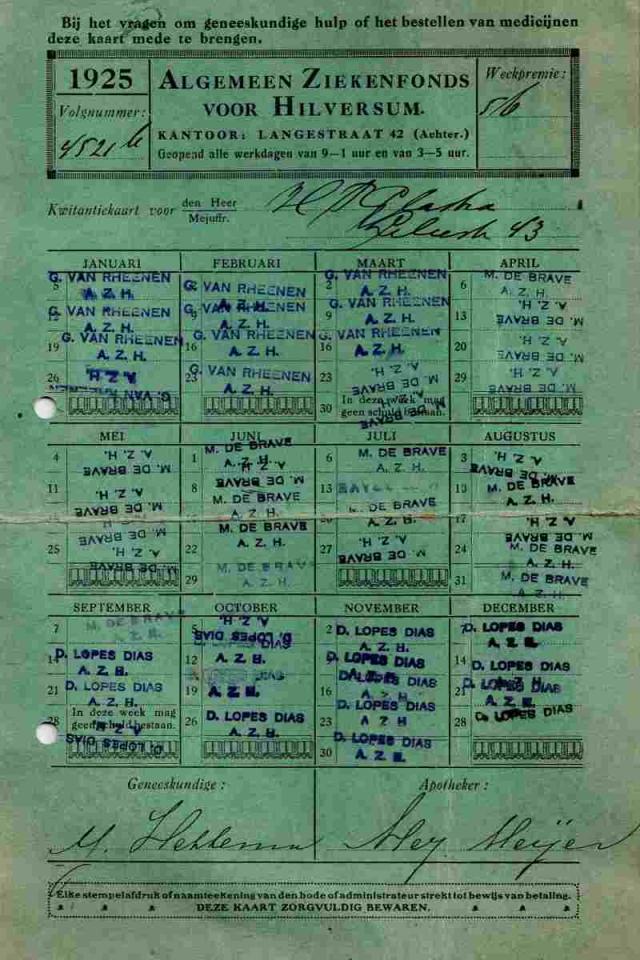 Bij het vragen om geneeskundige hulp of het bestellen van medicijnen
deze kaart mede te brengen.
1925
Volgnummer:
4521
ALGEMEEN ZIEKENFONDS
VOOR HILVERSUM.
KANTOOR: LANGESTRAAT 42 (Achter.)
Geopend alle werkdagen van 9—1 uur en van 3—5 uur.
Weekpremie:
5/6
Kwitantiekaart voor den Heer
Mejuffr.
43
JANUARI FEBRUARI MAART APRIL
G. VAN RHEENEN G. VAN RHEENEN G. VAN RHEENEN 6 M. DE BRAVE
A. Z. H. A. Z. H. A. Z. H. A. Z. H.
G. VAN RHEENEN 9 G. VAN RHEENEN 9 G. VAN RHEENEN 13 A. Z. H.
A. Z. H. A. Z. H. A. Z. H. M. DE BRAVE
19 G. VAN RHEENEN 16 G. VAN RHEENEN 16 G. VAN RHEENEN 20 A. Z. H.
A. Z. H. A. Z. H. A. Z. H. M. DE BRAVE
26 A. Z. H. 23 G. VAN RHEENEN 23 A. Z. H. 29 A. Z. H.
G. VAN RHEENEN A. Z. H. M. DE BRAVE M. DE BRAVE
30 In deze week mag
geen schuld bestaan.
M. DE BRAVE
MEI JUNI JULI AUGUSTUS
4 A. Z. H. 1 M. DE BRAVE 6 M. DE BRAVE 3 A. Z. H.
M. DE BRAVE A. Z. H. A. Z. H. M. DE BRAVE
11 A. Z. H. 8 M. DE BRAVE 13 M. DE BRAVE 10 M. DE BRAVE
M. DE BRAVE A. Z. H. A. Z. H. A. Z. H.
M. DE BRAVE M. DE BRAVE 17 A. Z. H.
25 A. Z. H. 22 A. Z. H. 27 A. Z. H. M. DE BRAVE
M. DE BRAVE M. DE BRAVE M. DE BRAVE 24 M. DE BRAVE
29 A. Z. H. A. Z. H.
31 M. DE BRAVE
A. Z. H.
SEPTEMBER OCTOBER NOVEMBER DECEMBER
7 M. DE BRAVE 5 A. Z. H. 2 D. LOPES DIAS 7 D. LOPES DIAS
A. Z. H. D. LOPES DIAS A. Z. H. A. Z. H.
14 D. LOPES DIAS 12 A. Z. H. D. LOPES DIAS 14 D. LOPES DIAS
A. Z. H. A. Z. H. A. Z. H.
21 D. LOPES DIAS 19 A. Z. H. 16 D. LOPES DIAS 21 D. LOPES DIAS
A. Z. H. A. Z. H. A. Z. H.
28 In deze week mag
geen schuld bestaan.
26 D. LOPES DIAS 23 D. LOPES DIAS 28 D. LOPES DIAS
A. Z. H. A. Z. H. A. Z. H.
D. LOPES DIAS 30 D. LOPES DIAS
A. Z. H.
Geneeskundige: Apotheker:
Meijer
Elke stempelafdruk of naamteekening van den bode of administrateur strekt tot bewijs van betaling.
DEZE KAART ZORGVULDIG BEWAREN.